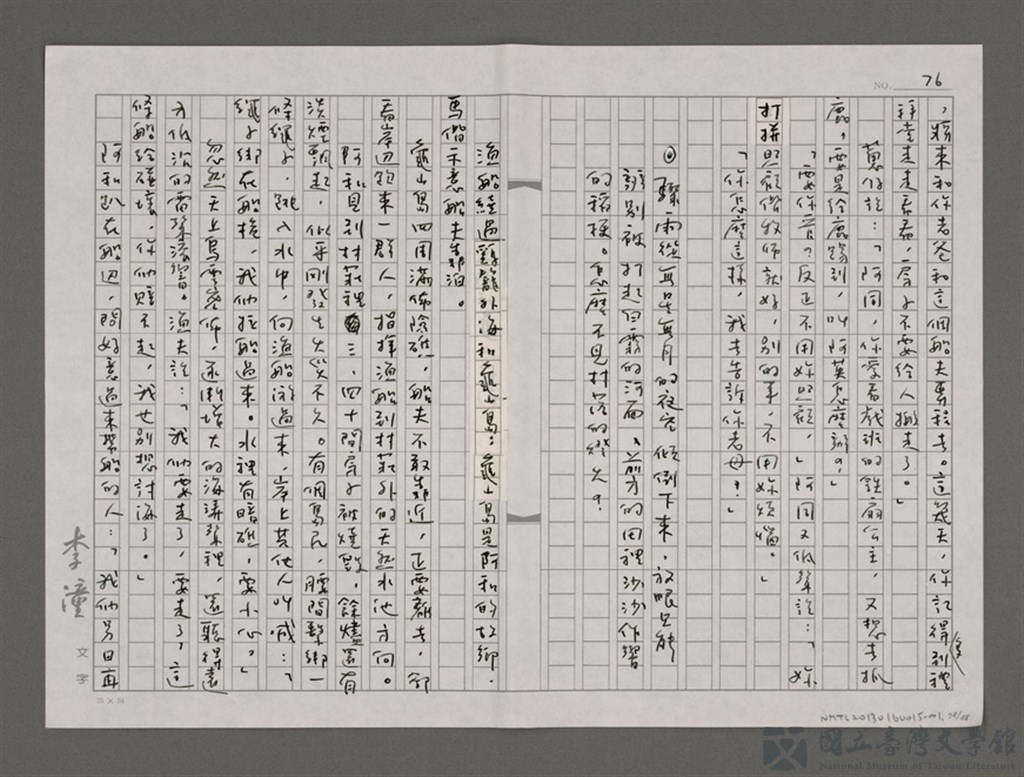 NO. 76
，將來和你老爸和這個船夫專程去。這幾天，你記得到禮
拜堂走走看看，房子不要給人搬走了。」
萬仔說：「阿同，你愛看戲班的鐵扇公主，又想去抓
鹿，要是給鹿踢到，叫阿英怎麼辦？」
「要你管？反正不用妳照顧，」阿同又低聲說：「妳
打拼照顧偕牧師就好，別的事，不用妳煩惱。」
「你怎麼這樣，我去告訴你老母！」
◎驟雨從無星無月的夜空傾倒下來，放眼只能
辨別被打起白霧的河面、前方的田裡沙沙作響
的稻穗。怎麼不見村落的燈火？
漁船經過雞籠外海和龜山島；龜山島是阿和的故鄉，
馬偕示意船夫靠泊。
龜山島四周滿佈險礁，船夫不敢靠近，正要離去，卻
看岸邊跑來一群人，指揮漁船到村莊外的天然水池方向。
阿和見到村莊裡三、四十間房子被燒毀，餘燼還有
淡煙飄起，似乎剛發生火災不久。有個島民，腰間繫綁一
條繩子，跳入水中，向漁船游過來，岸上其他人叫喊：「
繩子綁在船樁，我們拉船過來。水裡有暗礁，要小心。」
忽然天上烏雲密佈，逐漸增大的海濤聲裡，還聽得遠
方低沉的雷聲滾響。漁夫說：「我們要走了，要走了，這
條船給碰壞，你們賠不起，我也別想討海了。」
阿和趴在船邊，問好意過來幫船的人：「我們另日再
李潼
文字
25 × 24
NMTL20130160015-001, 78/88
國立臺灣文學館
National Museum of Taiwan Literature